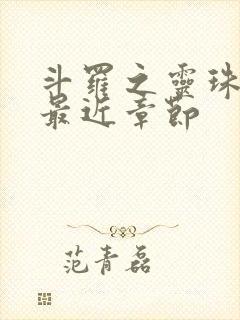 斗羅之靈珠
最近章節
范青磊